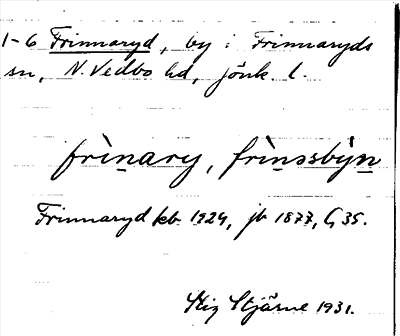 1-6 Frinnaryd, by i Frinnaryds
sn, N. Vedbo hd, jönk. l.
frìnary, frìnssbỳn
Frinnaryd kb 1924, jb 1877, G 35.
Stig Stjärne 1931.